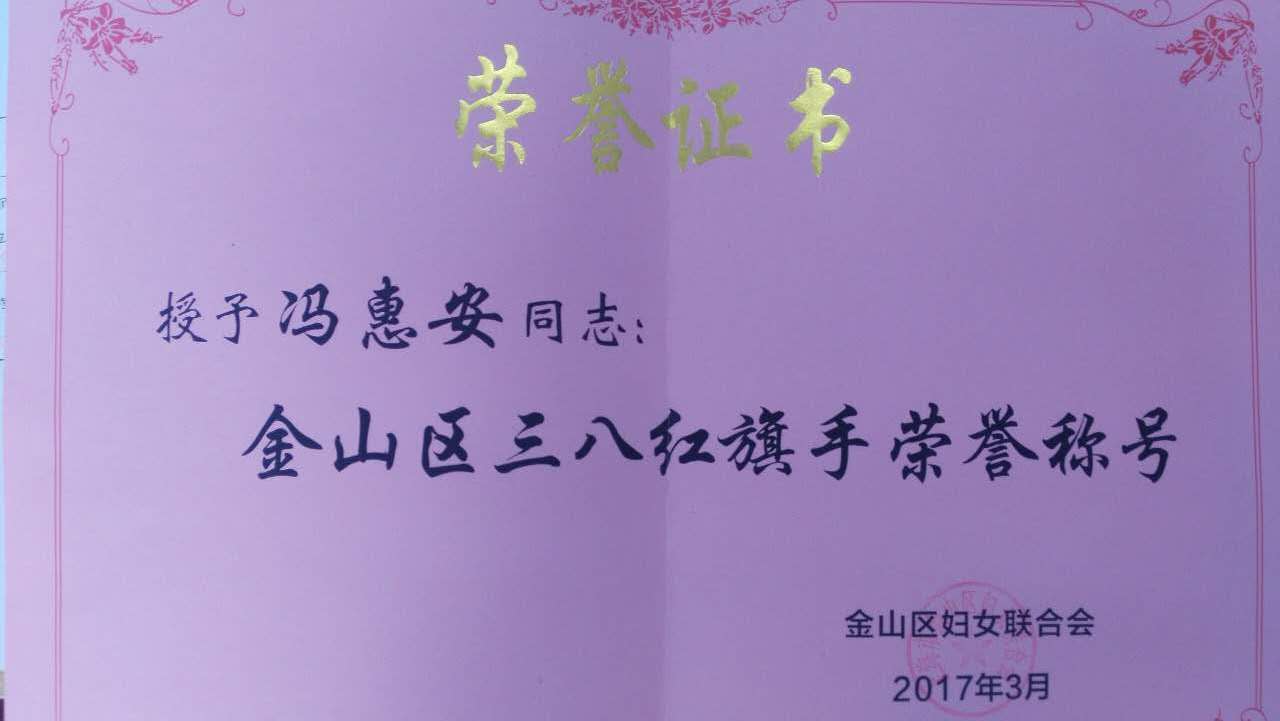 荣誉证书
授予冯惠安同志：
金山区三八红旗手荣誉称号
金山区妇女联合会
2017年3月